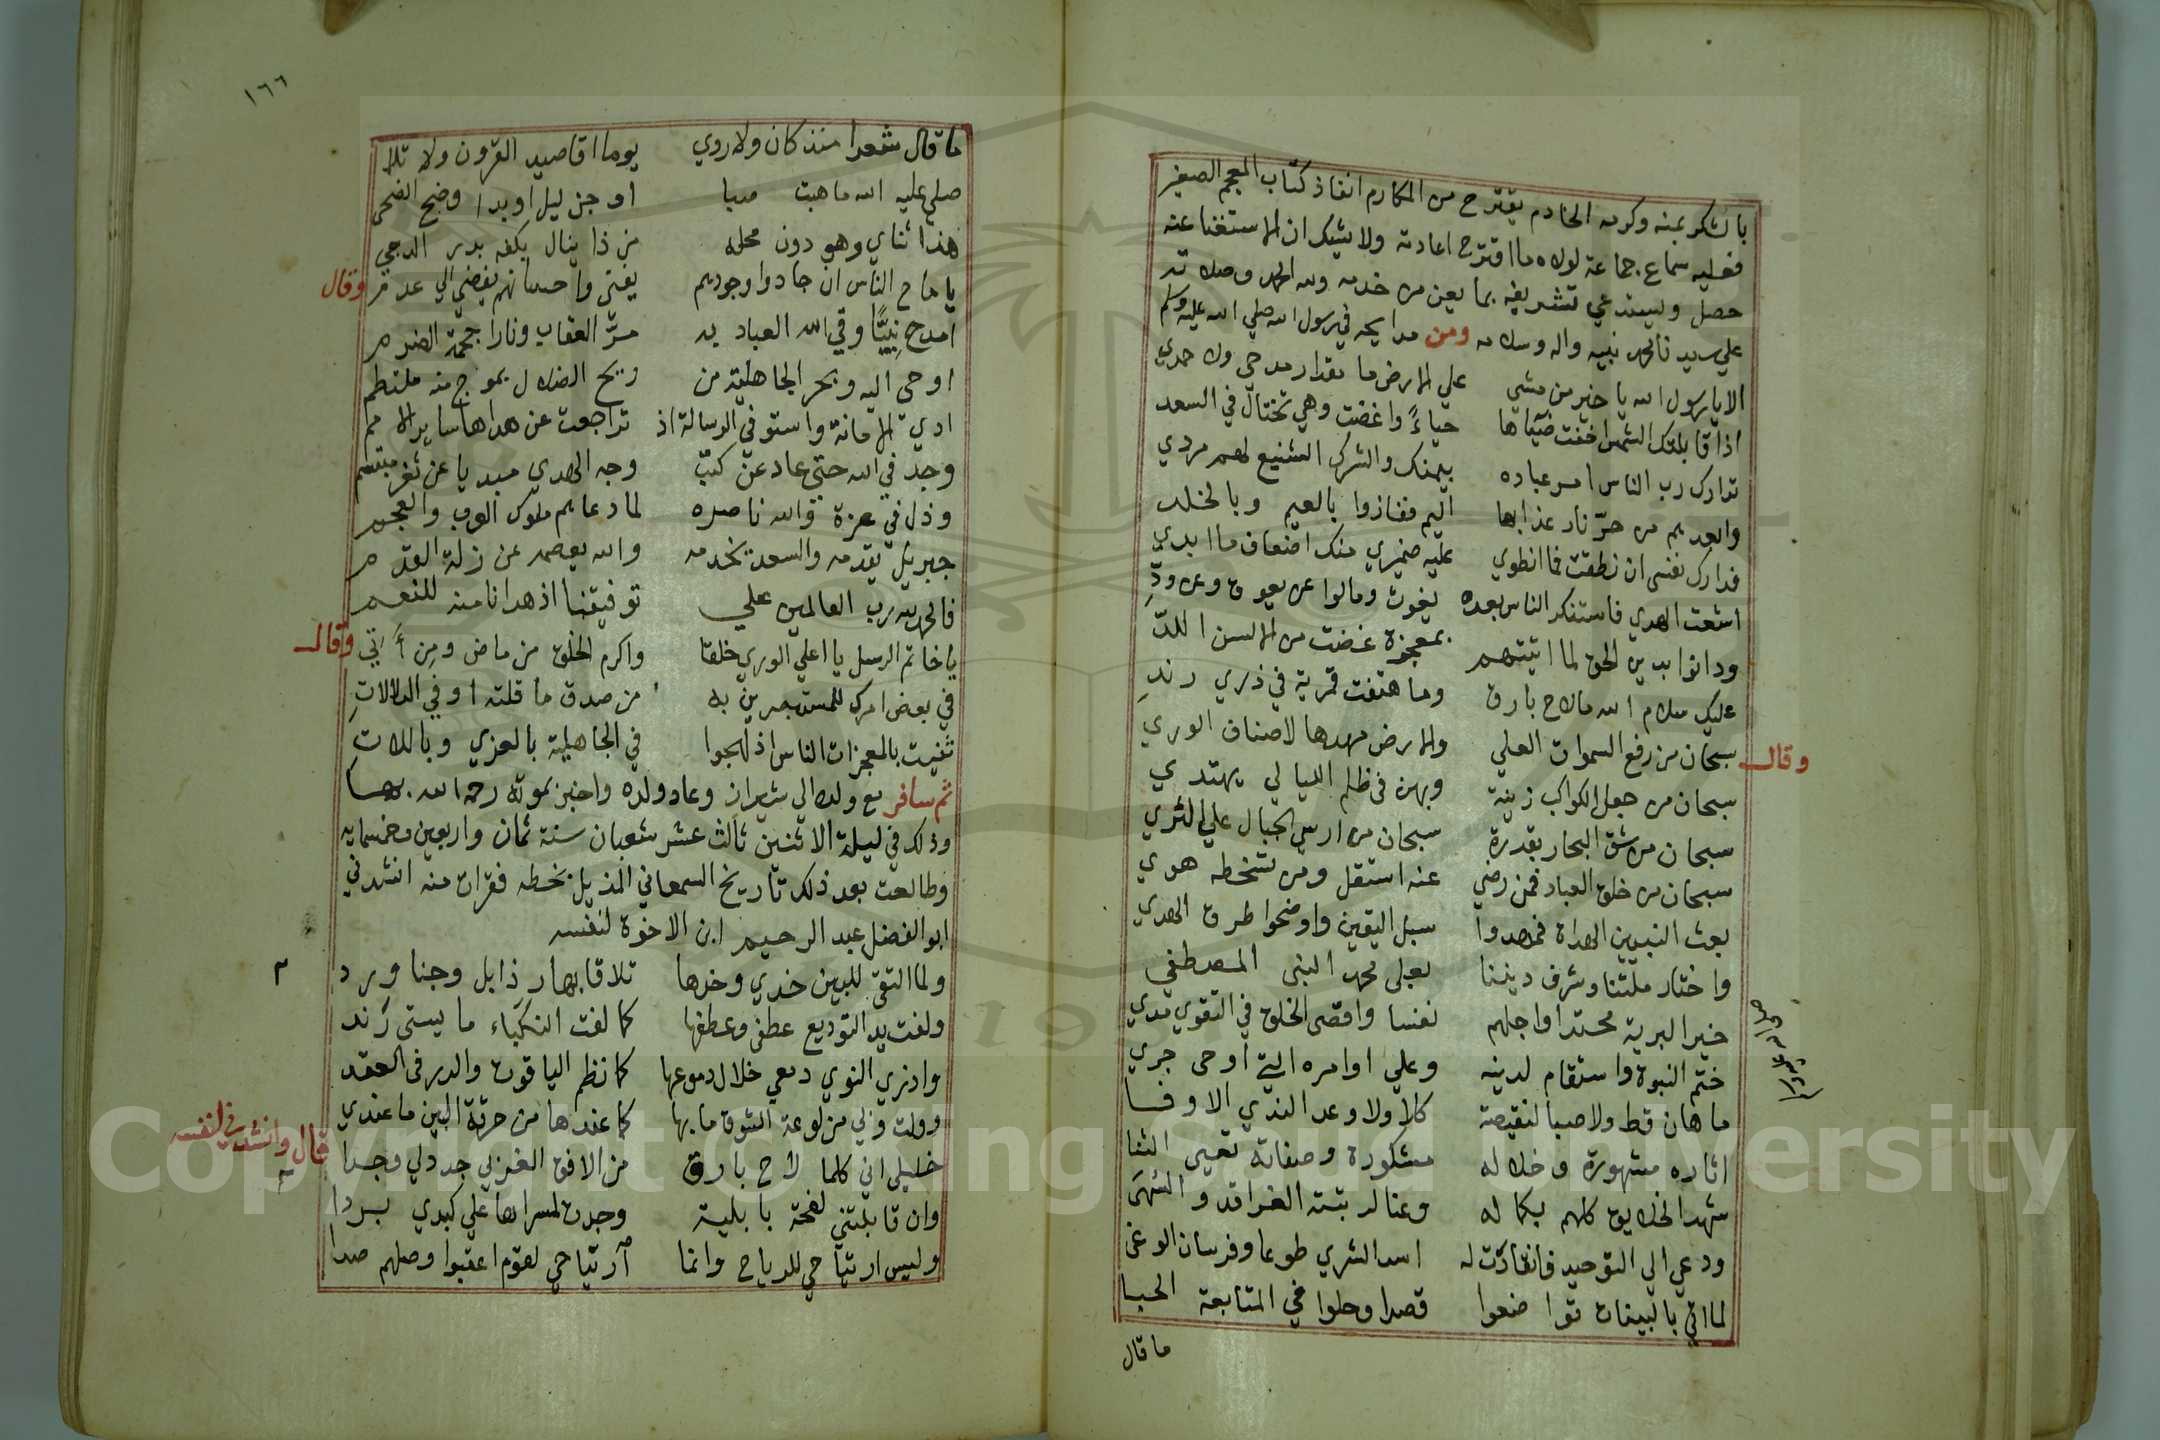 بالشكر بمنه وكرمه الخادم يقترح من المكارم انفاذ كتاب المعجم الصغير
فعليه سماع جماعة لولاه ما اقترح اعادته ولا يشك ان الاستغنا عنه
حصل ويستدعي تشريفه بما يعن من خدمه ولله الحمد وصلاته
علي سيدنا محمد نبيه واله وسلامه ومن مدايحه في رسول الله صلي الله عليه وسلم
الا يا رسول الله يا خير من مشي علي الارض ما مقدار مدحي ولا حمدي
اذا قابلتك الشمس اخفت ضياها حياءً واغضت وهي تختال في السعد
تدارك رب الناس امر عباده بيمنك والشرك الشنيع لهم مردي
وابعدهم من حرّ نار عذابها اليم ففازوا بالنعيم وبالخلد
فدارك نفسى ان نطقت فما انطوي عليه ضميري منك اضعاف ما ابدي
اشعت الهدي فاستنكر الناس بعده يغوث ومالوا عن يعوق وعن ودِّ
ودانوا بدين الحق لما اتيتهم بمعجزة غضت من الالسن اللدّ
عليك سلام الله ما لاح بارق وما هتفت قمرية في ذري رندِ
وقال
سبحان من رفع السموات العلي والارض مهدها لاصناف الوري
سبحان من جعل الكواكب زينة وبهن في ظلم الليالي يهتدي
سبحان من شق البحار بقدرة سبحان من ارسى الجبال علي الثري
سبحان من خلق العباد فمن رضي عنه استقل ومن تسخطه هوي
بعث النبيين الهداة فمهدوا سبل اليقين واوضحوا طرق الهدي
واختار ملتنا وشرف ديننا بعلى محمد النبى المصطفي
خير البرية محتدا واجلهم نفسا واقصى الخلق في التقوي مدي
ختم النبوة واستقام لدينه وعلي اوامره التي اوحى جري
ما هان قط ولا صبا لنقيصة كلا ولا وعد الندي الا وفا
اثاره مشهورة وخلاله مشكورة وصفاته تعيي الثنا
شهد الخلايق كلهم بكماله وعنا لرتبته الفراقد والسهى
ودعي الي التوحيد فانقادت له اسد الشري طوعا وفرسان الوغى
لما اتي بالبينات تواضعوا قصدا وحلوا في المتابعة الحبا
ما قال
١٦٦
ما قال شعرا منذ كان ولا روي يوما اقاصيد القرون ولا تلا
صلي عليه الله ما هبت صبا او جن ليل او بدا وضح الضحى
هذا ثناي وهو دون محله من ذا ينال بكفه بدر الدجي
وقال
يا مادح الناس ان جادوا وجودهم يفنى واحسانهم يفضي الي عدم
امدح نبيًّا وقي الله العباد به مرّ العقاب ونارا جمة الضرم
اوحى اليه وبحر الجاهلية من ريح الضلال بموج منه ملتطم
ادي الامانة واستوفي الرسالة اذ تراجعت عن هداها ساير الامم
وجد في الله حتى عاد عن كثب وجه الهدي مبديا عن ثغر مبتسم
وذل في عزة والله ناصره لما دعاهم ملوك العرب والعجم
جبريل يقدمه والسعد يخدمه والله يعصمه عن زلة القدم
فالحمد لله رب العالمين علي توفيقنا اذ هدانا منه للنعم
وقال
يا خاتم الرسل يا اعلي الوري خلقا واكرم الخلق من ماض ومن أتي
في بعض امرك للمستبصرين به من صدق ما قلته اوفي الدلالاتِ
ثنيت بالمعجزات الناس اذ لهجوا في الجاهلية بالعزي وباللاتِ
ثم سافر مع ولده الي شيراز وعاد ولده واخبر بموته رحمه الله بها
وذلك في ليلة الاثنين ثالث عشر شعبان سنة ثمان واربعين وخمسمايه
وطالعت بعد ذلك تاريخ السمعاني المذيل بخطه فقرات منه انشدني
ابو الفضل عبد الرحيم ابن الاخوة لنفسه
ولما التقى للبين خدي وخدها تلاقا بهار ذابل وجنا ورد
ولفت يد التوديع عطفى وعطفها كما لفت النكباء مايستى رند
واذري النوي دمعي خلال دموعها كما نظم الياقوت والدر فى العقد
وولت وبي من لوعة الشوق ما بها كما عندها من حرقة البين ما عندي
قال وانشدني لنفسه
خليلي اني كلما لاح بارق من الافق الغربي جدد لي وجدا
وان قابلتني لفحة بابلية وجدت لمسراها علي كبدي بردا
وليس ارتياحي للرياح وانما ارتياحي لقوم اعقبوا وصلهم صدا
Copyright © King Saud University